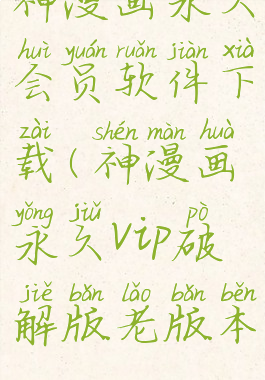 神漫画永久
huì yuán ruǎn jiàn xià
会员软件下
zài shén màn huà
载(神漫画
yǒng jiǔ pò
永久vip破
jiě bǎn lǎo bǎn běn
解版老版本